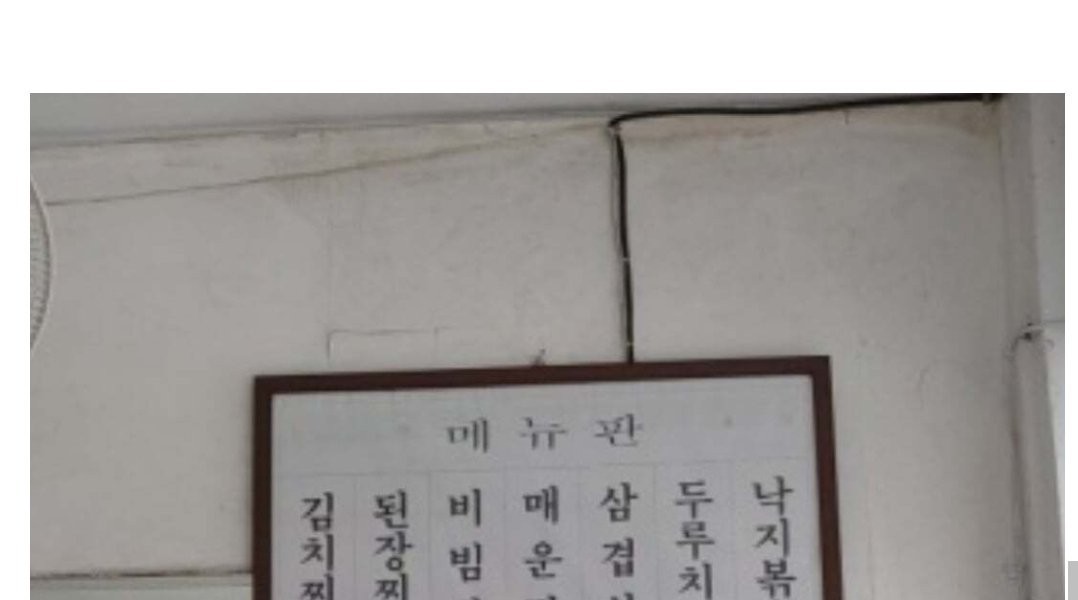 메뉴판
김치찌
된장찌
비빔
매운
삼겹
두루치
낙지볶